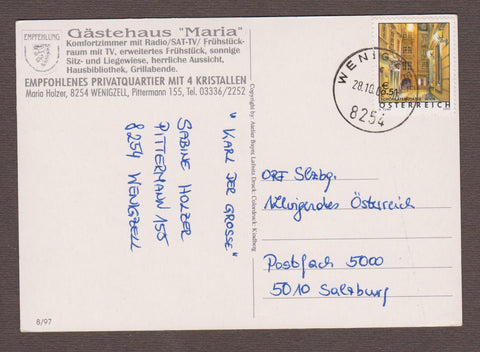 EMPFEHLUNG
Gästehaus "Maria"
Komfortzimmer mit Radio/SAT-TV/ Frühstück-
raum mit TV, erweitertes Frühstück, sonnige
Sitz- und Liegewiese, herrliche Aussicht,
Hausbibliothek, Grillabende.
EMPFOHLENES PRIVATQUARTIER MIT 4 KRISTALLEN
Maria Holzer, 8254 WENIGZELL, Pittermann 155, Tel. 03336/2252
"KARL DER GROSSE"
SABINE HOLZER
PITTERMANN 155
8254 WENIGZELL
8/97
Druck: Colordruck: Kindberg
WENIGZ
28.10.0
8254
0.51
ÖSTERREICH
ORF Slzbg.
Klingendes Österreich
Postfach 5000
5010 Salzburg